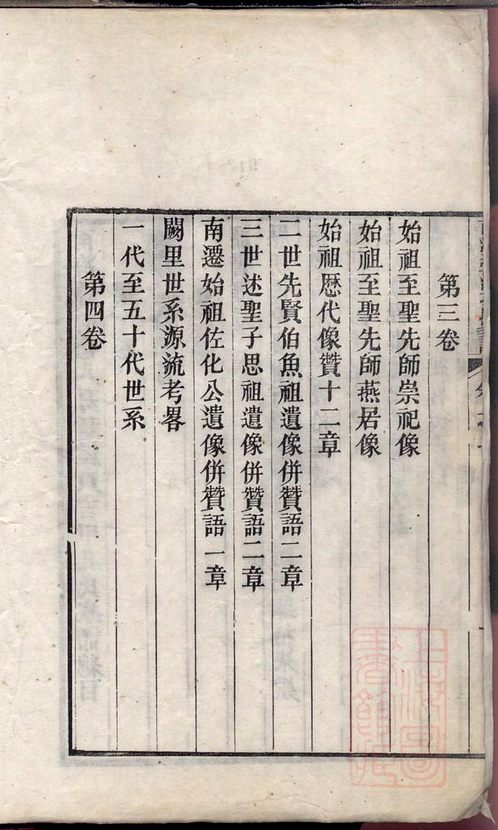 第三卷
始祖至聖先師崇祀像
始祖至聖先師燕居像
始祖歴代像贊十二章
二世先賢伯魚祖遺像併贊語二章
三世述聖子思祖遺像併贊語二章
南遷始祖佐化公遺像併贊語一章
闕里世系源流考畧
一代至五十代世系
第四卷
上海圖書館藏